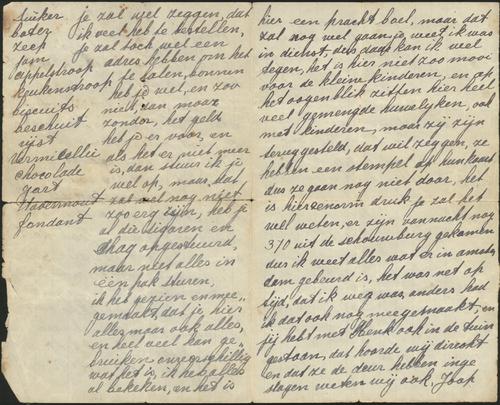 Suiker
boter
zeep
jam
appelstroop
keukenstroop
biscuits
beschuit
rijst
vermicallie
chocolade
gort
Havermout
fondant
je zal wel zeggen, dat
ik veel heb te bestellen,
je zal toch wel een
adres hebben om het
te halen, bonnen
heb je wel, en zoo
niet, dan maar
zonder, het geld
heb je er voor, en
als het er niet meer
is, dan stuur ik je
wel op, maar, dat
zal wel nog niet
zoo erg zijn, heb je
al die sigaren en
shag opgestuurd,
maar niet alles in
een pak sturen,
ik heb gezien en mee
gemaakt, dat je hier
alles maar ook alles,
en heel veel kan ge
bruiken onverschillig
wat het is, ik heb alles
al bekeken, en het is
hier een pracht boel, maar dat
zal nog wel gaan, je weet ik was
in dienst, dus daar kan ik wel
tegen, het is hier niet zoo mooi
voor de kleine kinderen, en op
het oogenblik zitten hier heel
veel gemengde huwelijken, ook
met kinderen, maar zij zijn
terug gesteld, dat wil zeggen, ze
hebben een stempel op hun kaart
dus ze gaan nog niet door, het
is hier enorm druk je zal het
wel weten, er zijn vannacht nog
370 uit de schouwburg gekomen
dus ik weet alles wat er in amster
dam gebeurd is, het was net op
tijd, dat ik weg was, anders had
ik dat ook nog mee gemaakt, en
jij hebt met Henk ook in de tuin
gestaan, dat hoorde wij direkt
en dat ze de deur hebben inge
slagen weten wij ook. Joop